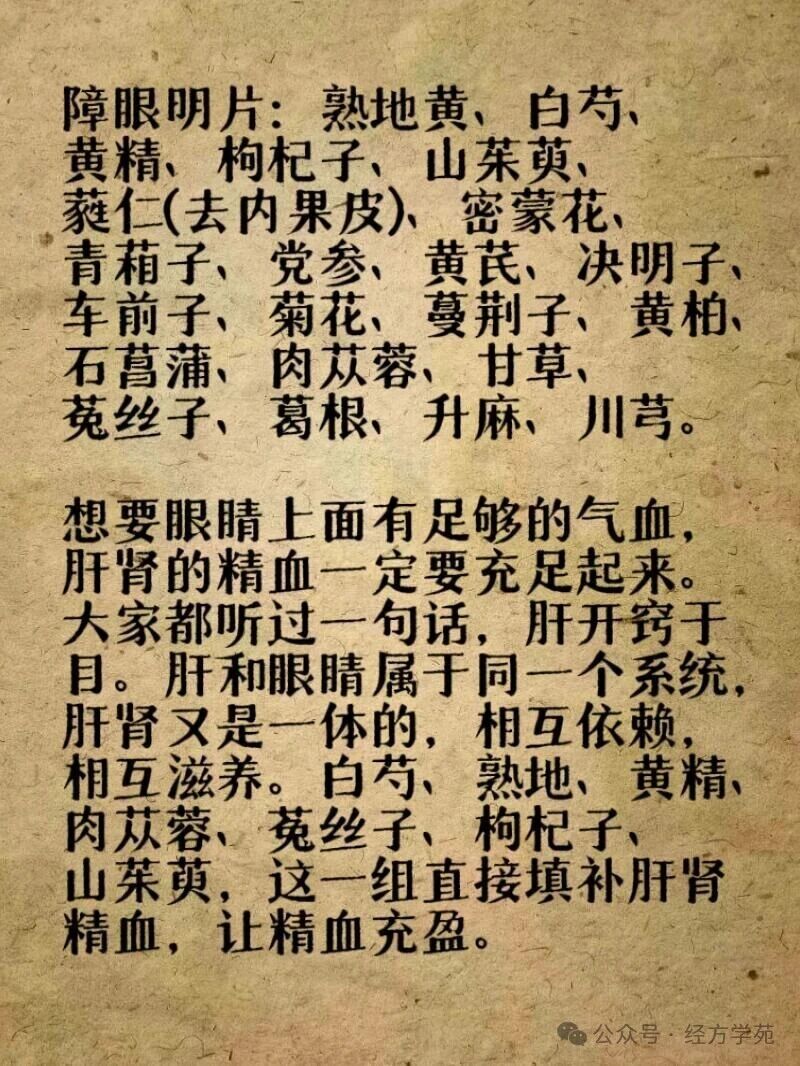 障眼明片：熟地黄、白芍、
黄精、枸杞子、山茱萸、
蕤仁(去内果皮)、密蒙花、
青葙子、党参、黄芪、决明子、
车前子、菊花、蔓荆子、黄柏、
石菖蒲、肉苁蓉、甘草、
菟丝子、葛根、升麻、川芎。
想要眼睛上面有足够的气血，
肝肾的精血一定要充足起来。
大家都听过一句话，肝开窍于
目。肝和眼睛属于同一个系统，
肝肾又是一体的，相互依赖，
相互滋养。白芍、熟地、黄精、
肉苁蓉、菟丝子、枸杞子、
山茱萸，这一组直接填补肝肾
精血，让精血充盈。
公众号·经方学苑